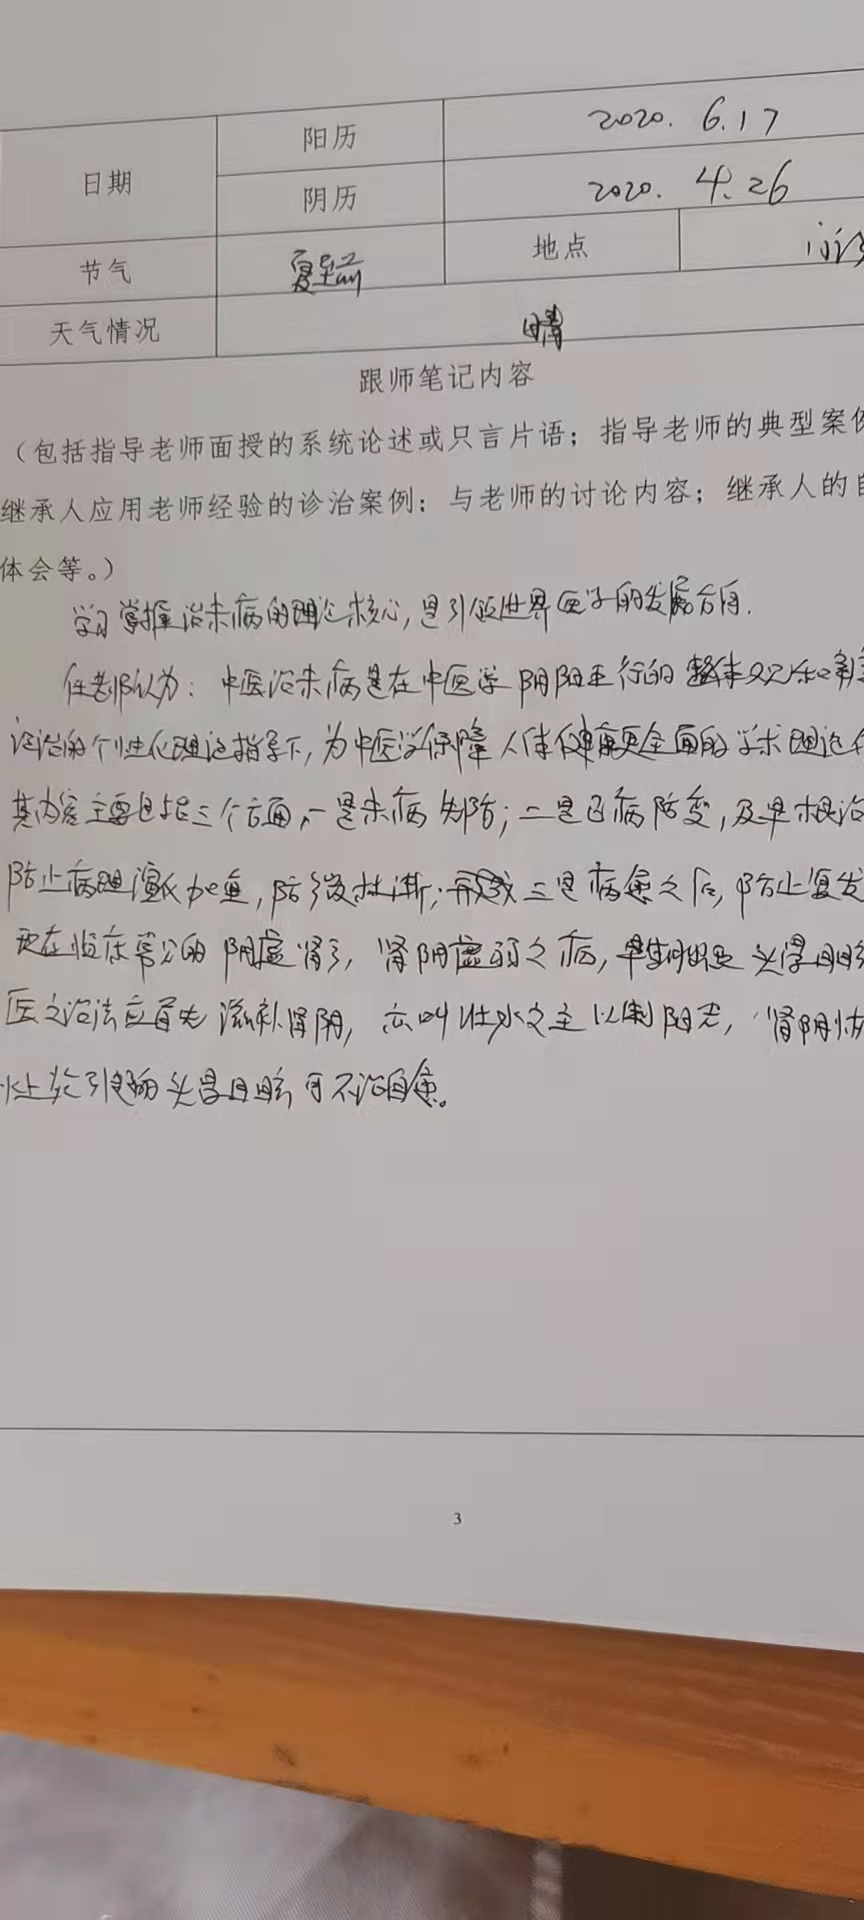 日期 阳历 2020. 6.17
阴历 2020. 4.26
节气 夏至前 地点 门诊
天气情况 晴
跟师笔记内容
（包括指导老师面授的系统论述或只言片语；指导老师的典型案例
继承人应用老师经验的诊治案例；与老师的讨论内容；继承人的自
体会等。）
学习掌握治未病的理论核心，是引领世界医学的发展方向.
任老师认为：中医治未病是在中医学阴阳五行的整体观和辨
论治的个性化理论指导下，为中医学保障人体健康更全面的学术理论
其内容主要包括三个方面，一是未病先防；二是已病防变，及早根治
防止病理演化加重，防微杜渐；三是病愈之后，防止复发
现在临床常见的阴虚肾亏，肾阴虚弱之病，头晕目眩
医之治法应首先滋补肾阴，亦叫壮水之主以制阳光，肾阴
上亢引起的头晕目眩可不治自愈。
3